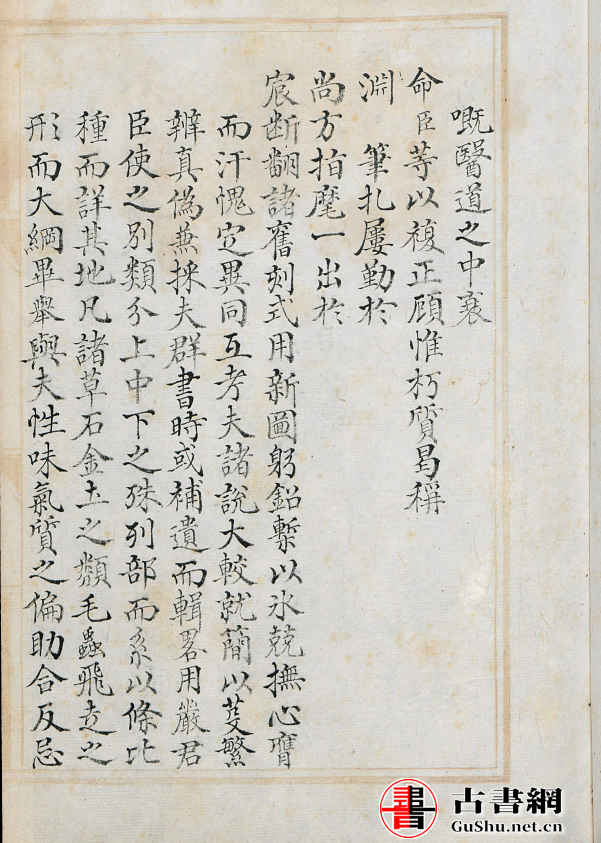 嘅醫道之中衰
命臣等以複正顾惟朽質曷稱
淵 筆扎屢勤於
尚方指麾一出於
宸断翻諸舊刻式用新圖躬鉛槧以氷兢撫心膺
而汗愧定異同互考夫諸説大較就簡以芟繁
辨真偽兼採夫群書時或補遺而輯畧用嚴君
臣使之別類分上中下之殊列部而系以條比
種而詳其地凡諸草石金土之類毛蟲飛走之
形而大綱畢舉與夫性味氣質之偏助合反忌
古書網
GuShu.net.cn